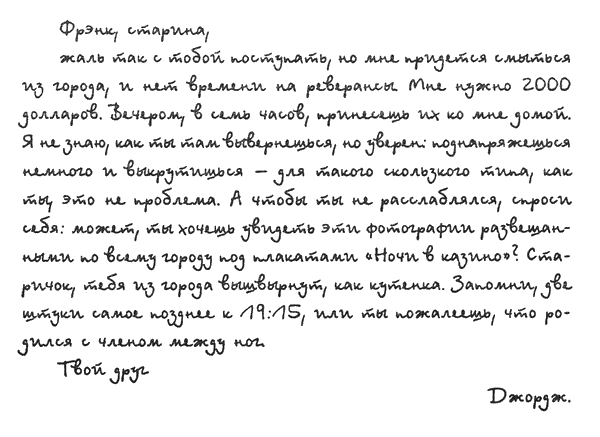 Фрэнк, старина,
жаль так с тобой поступать, но мне придется смыться
из города, и нет времени на реверансы. Мне нужно 2000
долларов. Вечером, в семь часов, принесешь их ко мне домой.
Я не знаю, как ты там вывернешься, но уверен: поднапряжешься
немного и выкрутишься — для такого скользкого типа, как
ты, это не проблема. А чтобы ты не расслаблялся, спроси
себя: может, ты хочешь увидеть эти фотографии развешан-
ными по всему городу под плакатами «Ночи в казино»? Ста-
ричок, тебя из города вышвырнут, как кутенка. Запомни, две
штуки самое позднее к 19:15, или ты пожалеешь, что ро-
дился с членом между ног.
Твой друг
Джордж.